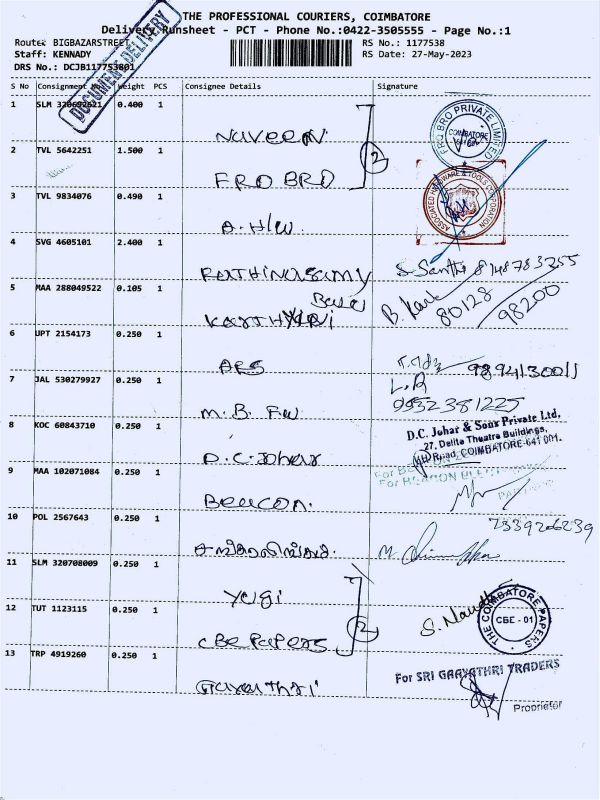 THE PROFESSIONAL COURIERS, COIMBATORE
Delivery Runsheet - PCT - Phone No.:0422-3505555 - Page No.:1
Route: BIGBAZARSTREET
RS No.: 1177538
Staff: KENNADY
RS Date: 27-May-2023
DRS No.: DCJB117753801
DOCUMENT DELIVERY
S No Consignment No Weight PCS Consignee Details Signature
1 SLM 320692621 0.400 1 Naveen
FRO BRO PRIVATE LIMITED COIMBATORE
2 TVL 5642251 1.500 1 FRO BRO
2
3 TVL 9834076 0.490 1 A. H/W.
ASSOCIATED HARDWARE & TOOLS CORPORATION
4 SVG 4605101 2.400 1 Rathinasamy S. Santhi 8148783255
5 MAA 288049522 0.105 1 Karthykai B. 80128 98200
6 UPT 2154173 0.250 1 ARS 9894130011
7 JAL 530279927 0.250 1 M. B. F.W L.R 9952381225
8 KOC 60843710 0.250 1 D.C. Johar
D.C. Johar & Sons Private Ltd,
27, Delite Theatre Buildings,
Road, COIMBATORE-641 001.
9 MAA 102071084 0.250 1 Beacon.
10 POL 2567643 0.250 1 M.
7339206239
11 SLM 320708009 0.250 1 Yugi
12 TUT 1123115 0.250 1 CBE Papers S.
2
THE COIMBATORE PAPERS CBE - 01
13 TRP 4919260 0.250 1 Gayathri
For SRI GAAYATHRI TRADERS
Proprietor